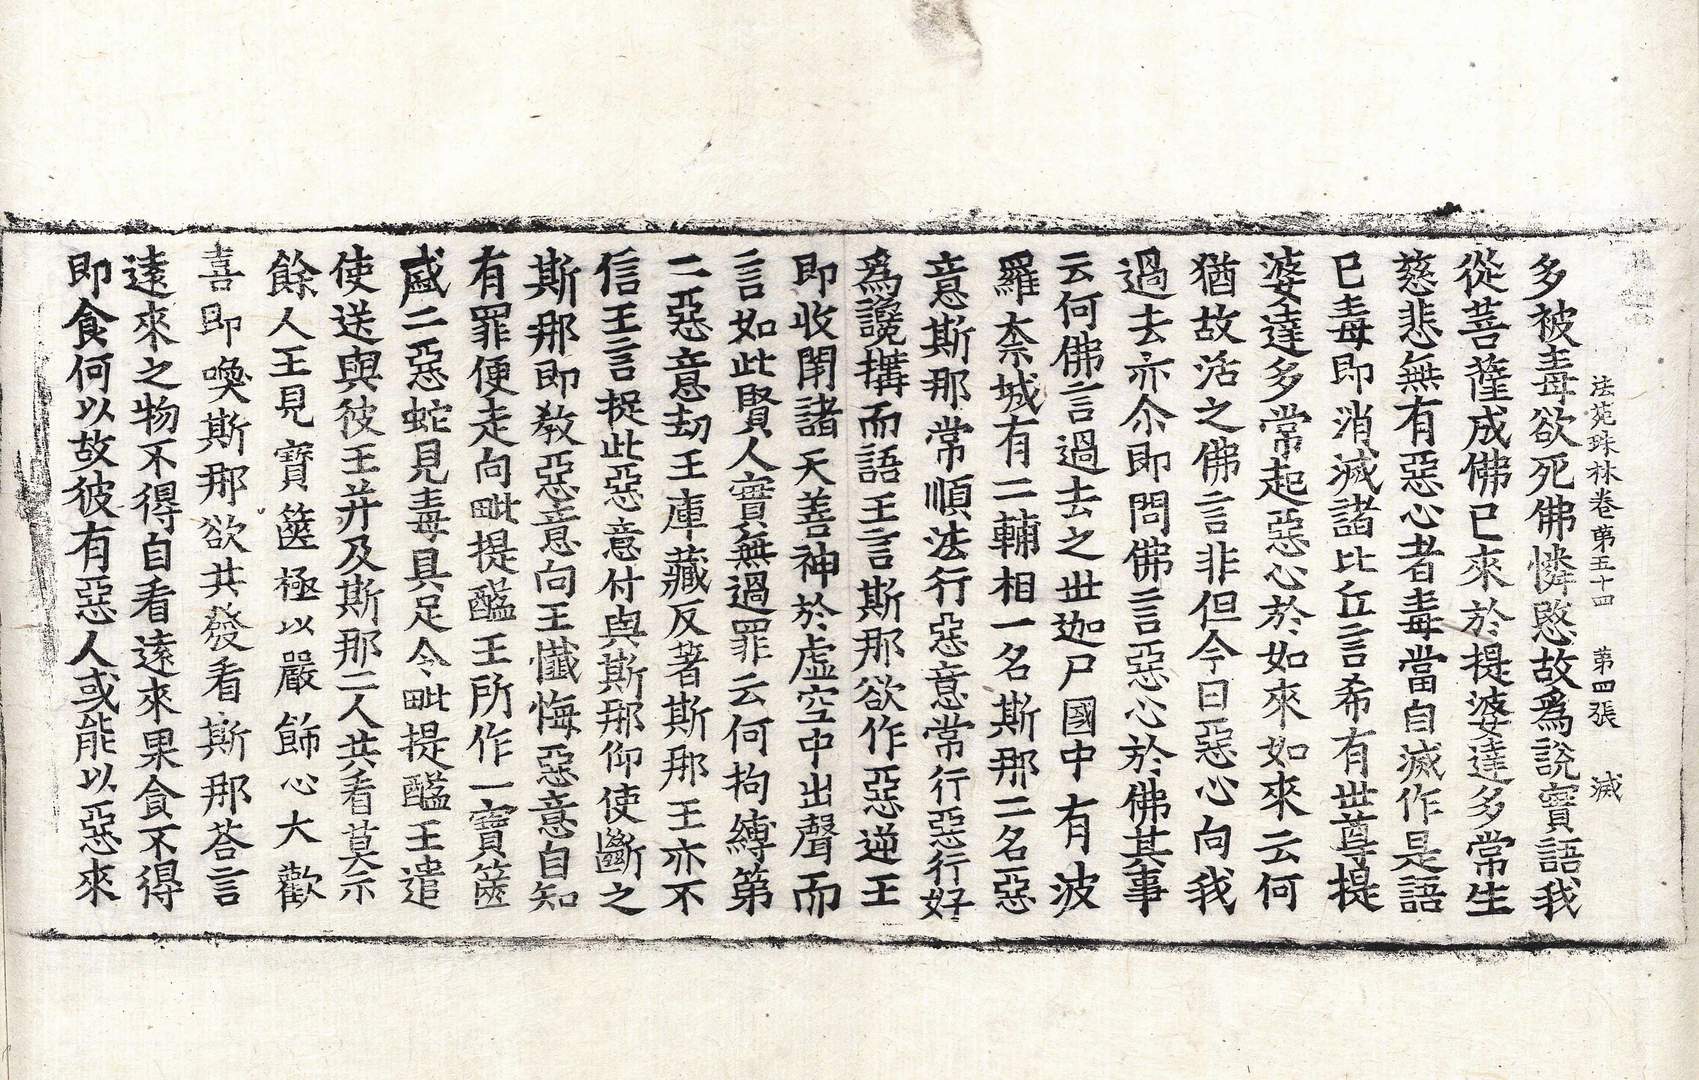 法苑珠林卷第五十四　第四張　滅
多被毒欲死佛憐愍故爲說實語我
從菩薩成佛已來於提婆達多常生
慈悲無有惡心者毒當自滅作是語
已毒即消滅諸比丘言希有世尊提
婆達多常起惡心於如來如來云何
猶故活之佛言非但今日惡心向我
過去亦尒即問佛言惡心於佛其事
云何佛言過去之世迦尸國中有波
羅柰城有二輔相一名斯那二名惡
意斯那常順法行惡意常行惡行好
爲讒搆而語王言斯那欲作惡逆王
即收閉諸天善神於虛空中出聲而
言如此賢人實無過罪云何拘縛第
二惡意劫王庫藏反著斯那王亦不
信王言捉此惡意付與斯那仰使斷之
斯那即教惡意向王懺悔惡意自知
有罪便走向毗提醯王所作一寶篋
盛二惡蛇見毒具足令毗提醯王遣
使送與彼王并及斯那二人共看莫示
餘人王見寶篋極以嚴飾心大歡
喜即喚斯那欲共發看斯那荅言
遠來之物不得自看遠來果食不得
即食何以故彼有惡人或能以惡來